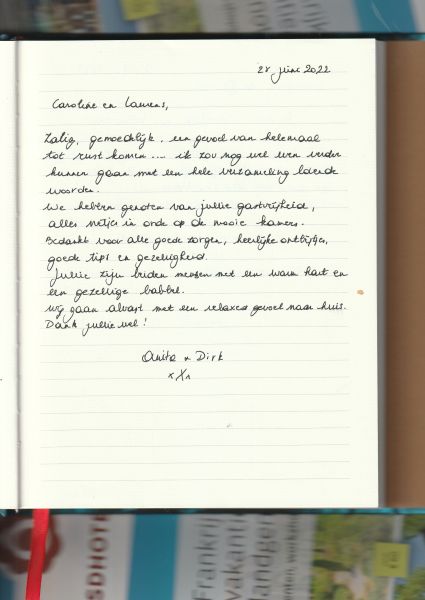 28 juni 2022
Caroline en Laurens,
Zalig, gemoedelijk, een gevoel van helemaal
tot rust komen .... ik zou nog wel even verder
kunnen gaan met een hele verzameling lovende
woorden.
We hebben genoten van jullie gastvrijheid,
alles netjes in orde op de mooie kamers.
Bedankt voor alle goede zorgen, heerlijke ontbijtjes,
goede tips en gezelligheid.
Jullie zijn beiden mensen met een warm hart en
een gezellige babbel.
Wij gaan alvast met een relaxed gevoel naar huis.
Dank jullie wel!
Anita & Dirk
xXx
SDHOTE
Frankrij
vakanti